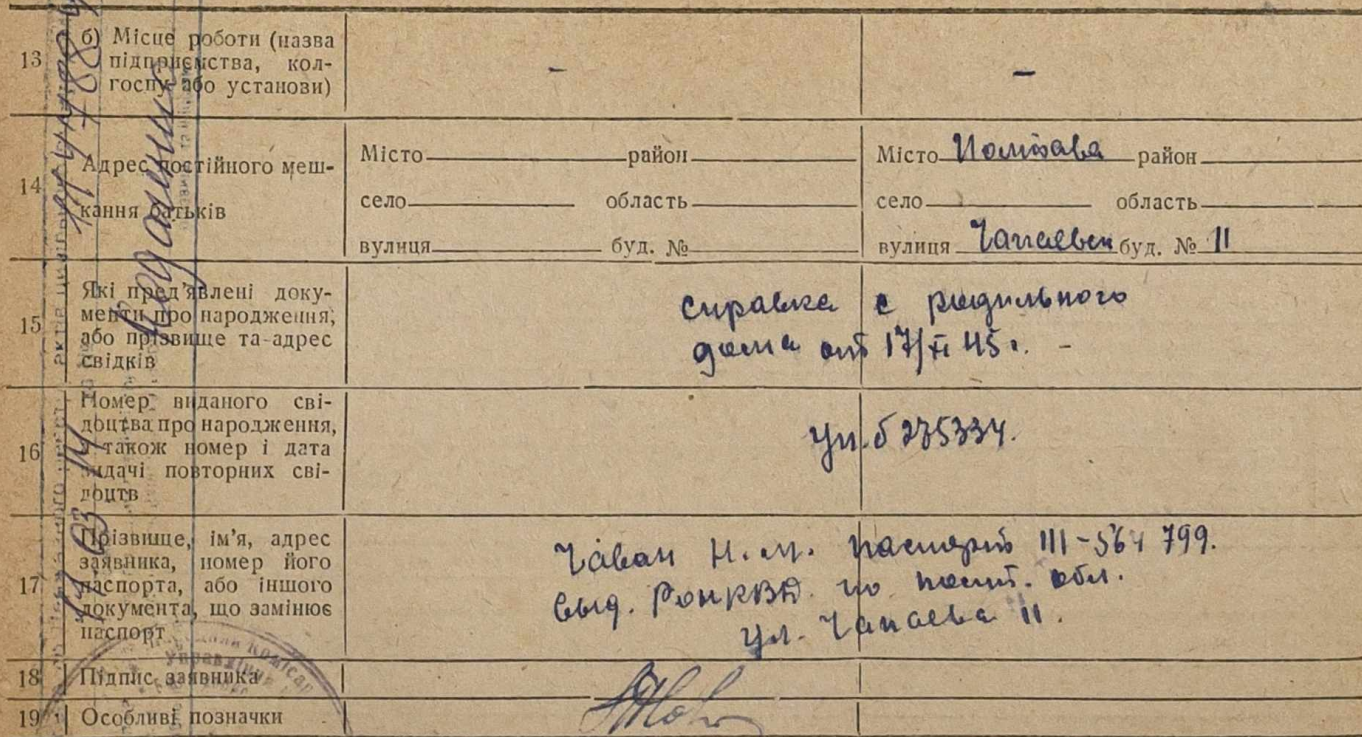 13 б) Місце роботи (назва
підприємства, кол-
госпу або установи) - -
14 Адрес постійного меш-
кання батьків
Місто район
село область
вулиця буд. №
Місто Полтава район
село область
вулиця Чапаевск буд. № 11
15 Які пред'явлені доку-
менти про народження,
або прізвище та адрес
свідків
справка с родильного
дома от 17/XI 45 г. -
16 Номер виданого сві-
доцтва про народження,
а також номер і дата
видачі повторних сві-
доцтв
235334.
17 Прізвище, ім'я, адрес
заявника, номер його
паспорта, або іншого
документа, що замінює
паспорт
Н. М. паспорт III-564 799.
выд. по полт. обл.
ул. Чапаева 11.
18 Підпис заявника
19 Особливі позначки